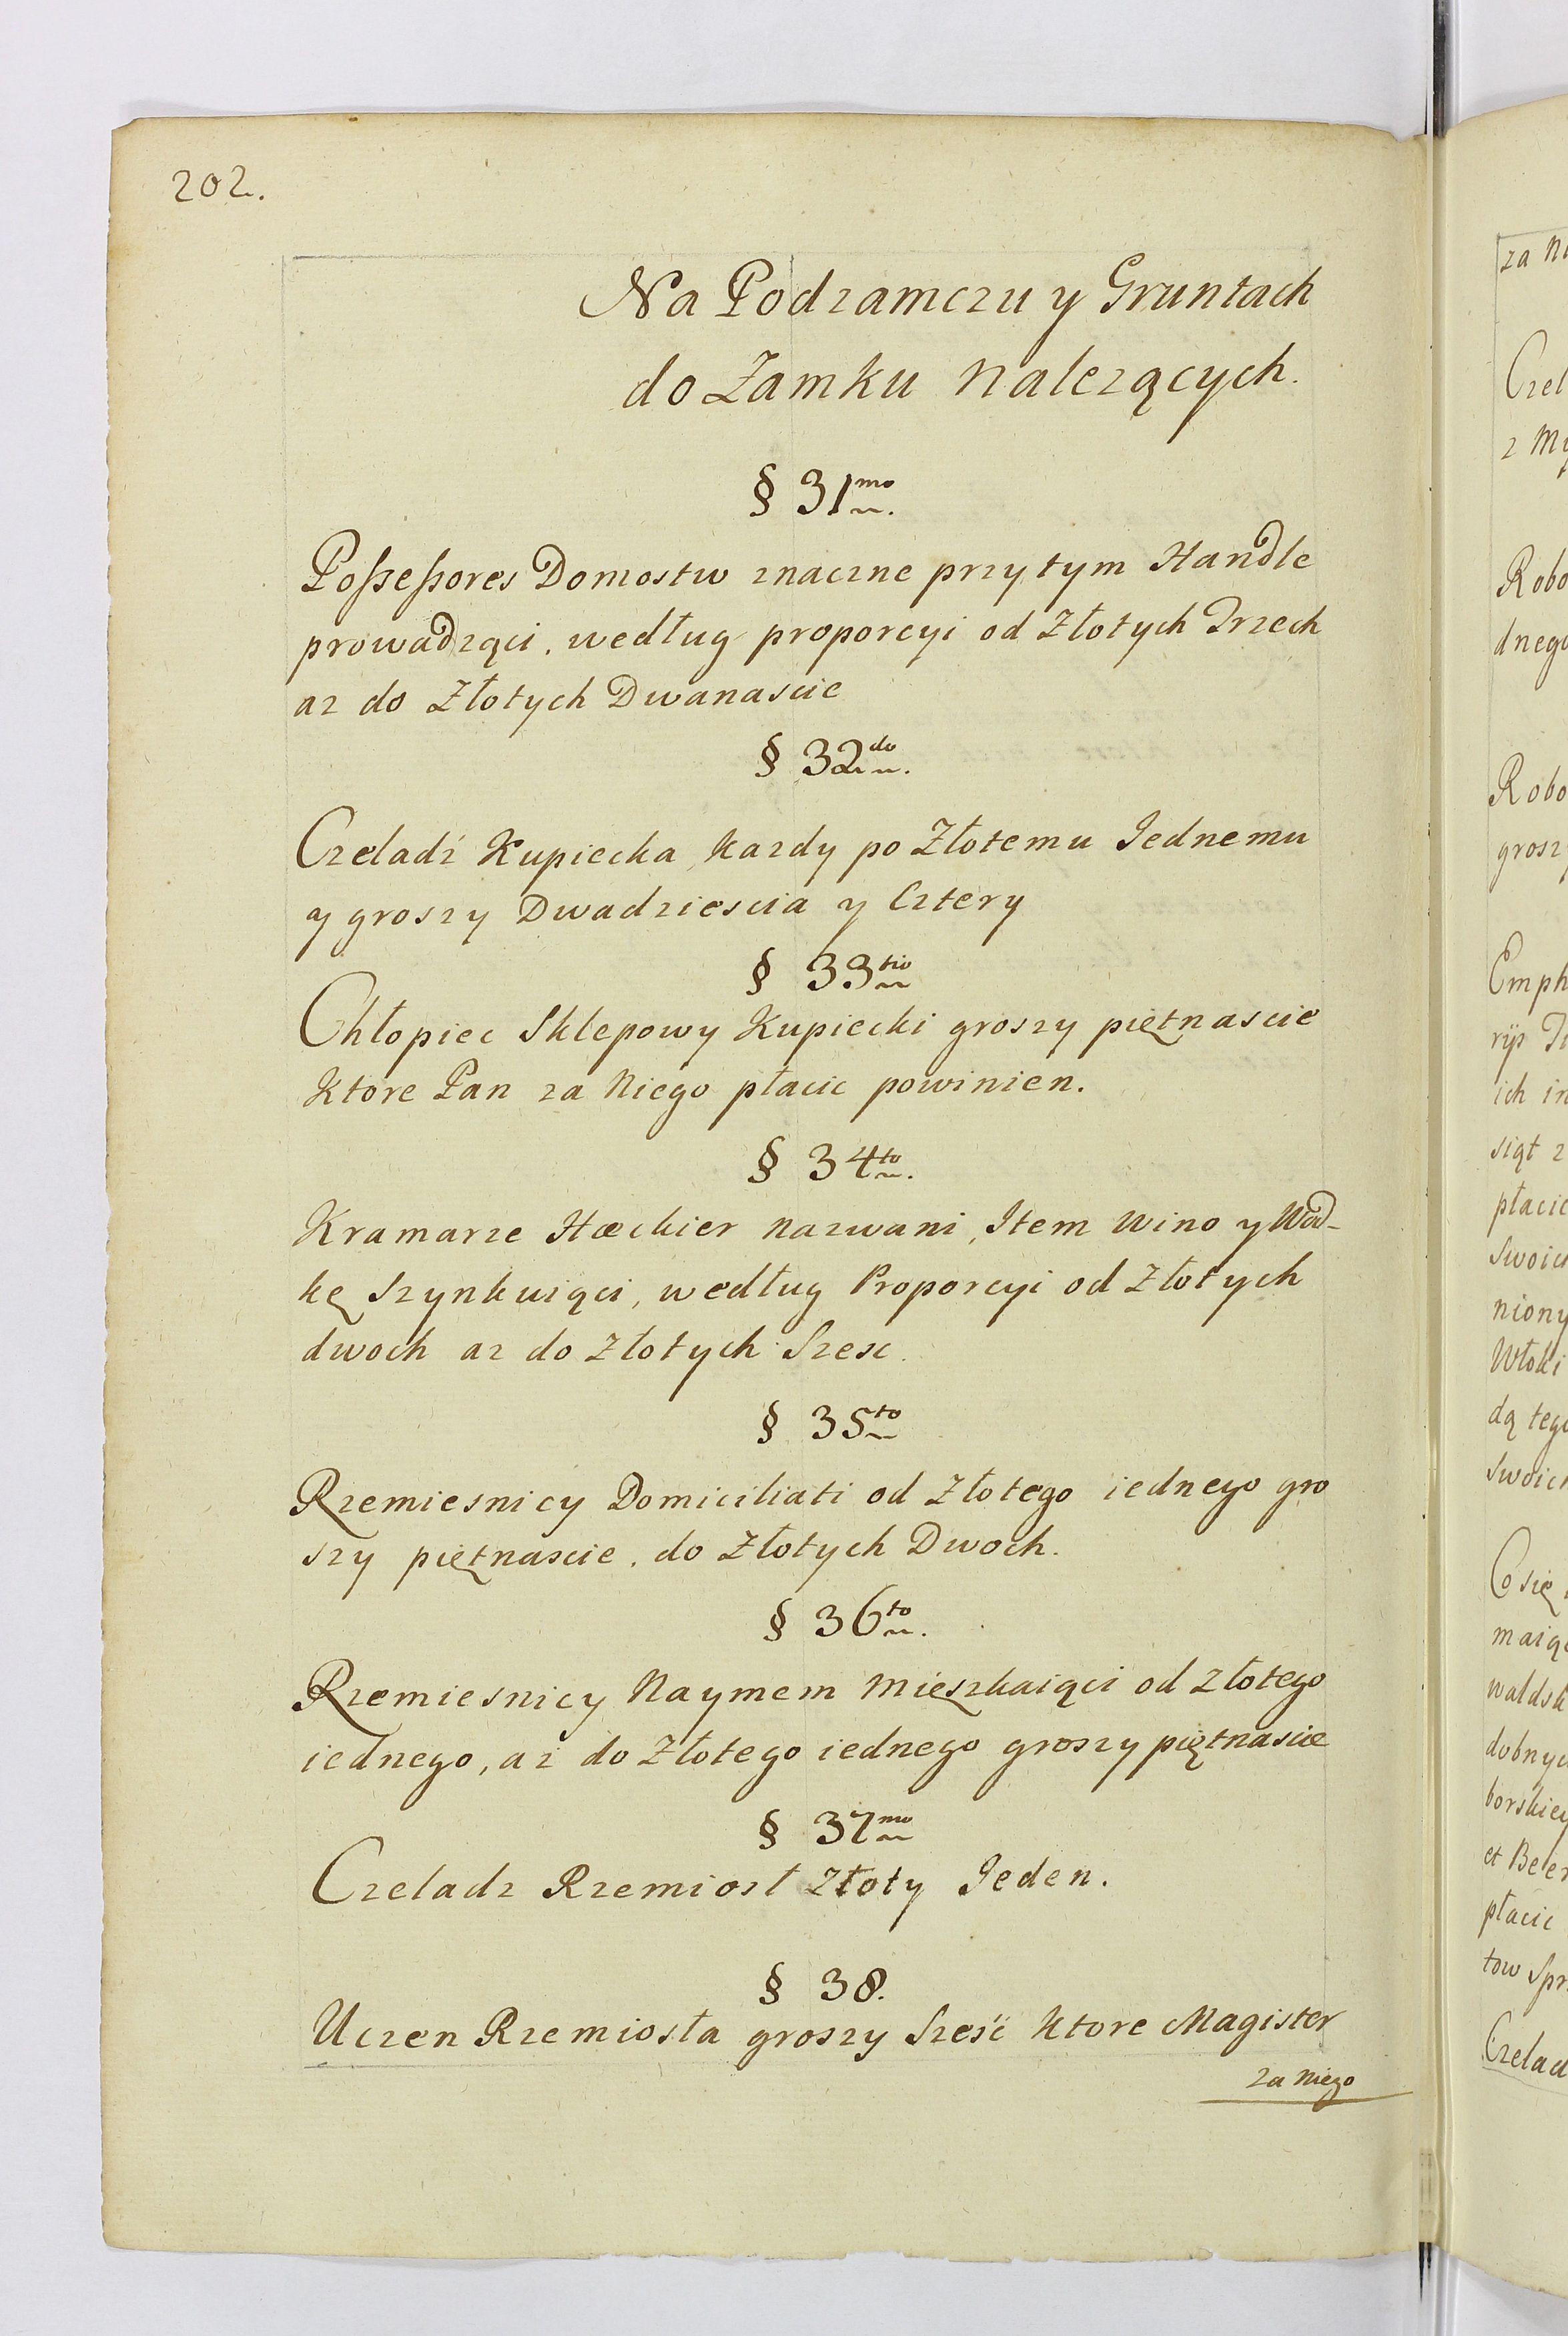 202.
Na Podzamczu y Gruntach
do Zamku nalezących.
§ 31mo.
Possessores Domostw znaczne przytym Handle
prowadzący, według proporcyi od Złotych Trzech
az do Złotych Dwanascie
§ 32do.
Czeladź Kupiecka, kazdy po Złotemu Jednemu
y groszy Dwadziescia y Cztery
§ 33tio
Chłopiec Sklepowy Kupiecki groszy piętnascie
Ktore Pan za niego płacic powinien.
§ 34to.
Kramarze Hæckier nazwani, Item Wino y Wod-
kę Szynkuiąci, według Proporcyi od Złotych
dwoch az do Złotych Szesc.
§ 35to
Rzemiesnicy Domiciliati od Złotego iednego gro
szy piętnascie, do Złotych Dwoch.
§ 36to.
Rzemiesnicy Naymem mięszkaiąci od złotego
iednego, aż do Złotego iednego groszy piętnascie
§ 37mo
Czeladz Rzemiosł Złoty Jeden.
§ 38.
Uczen Rzemiosła groszy Sześć ktore Magister
za niego
Robo
dnego
Robo
grosz
Emph
płacic
Włoki
dą tego
Co się
waldsk
et Beer
płacic
tow
Czelad